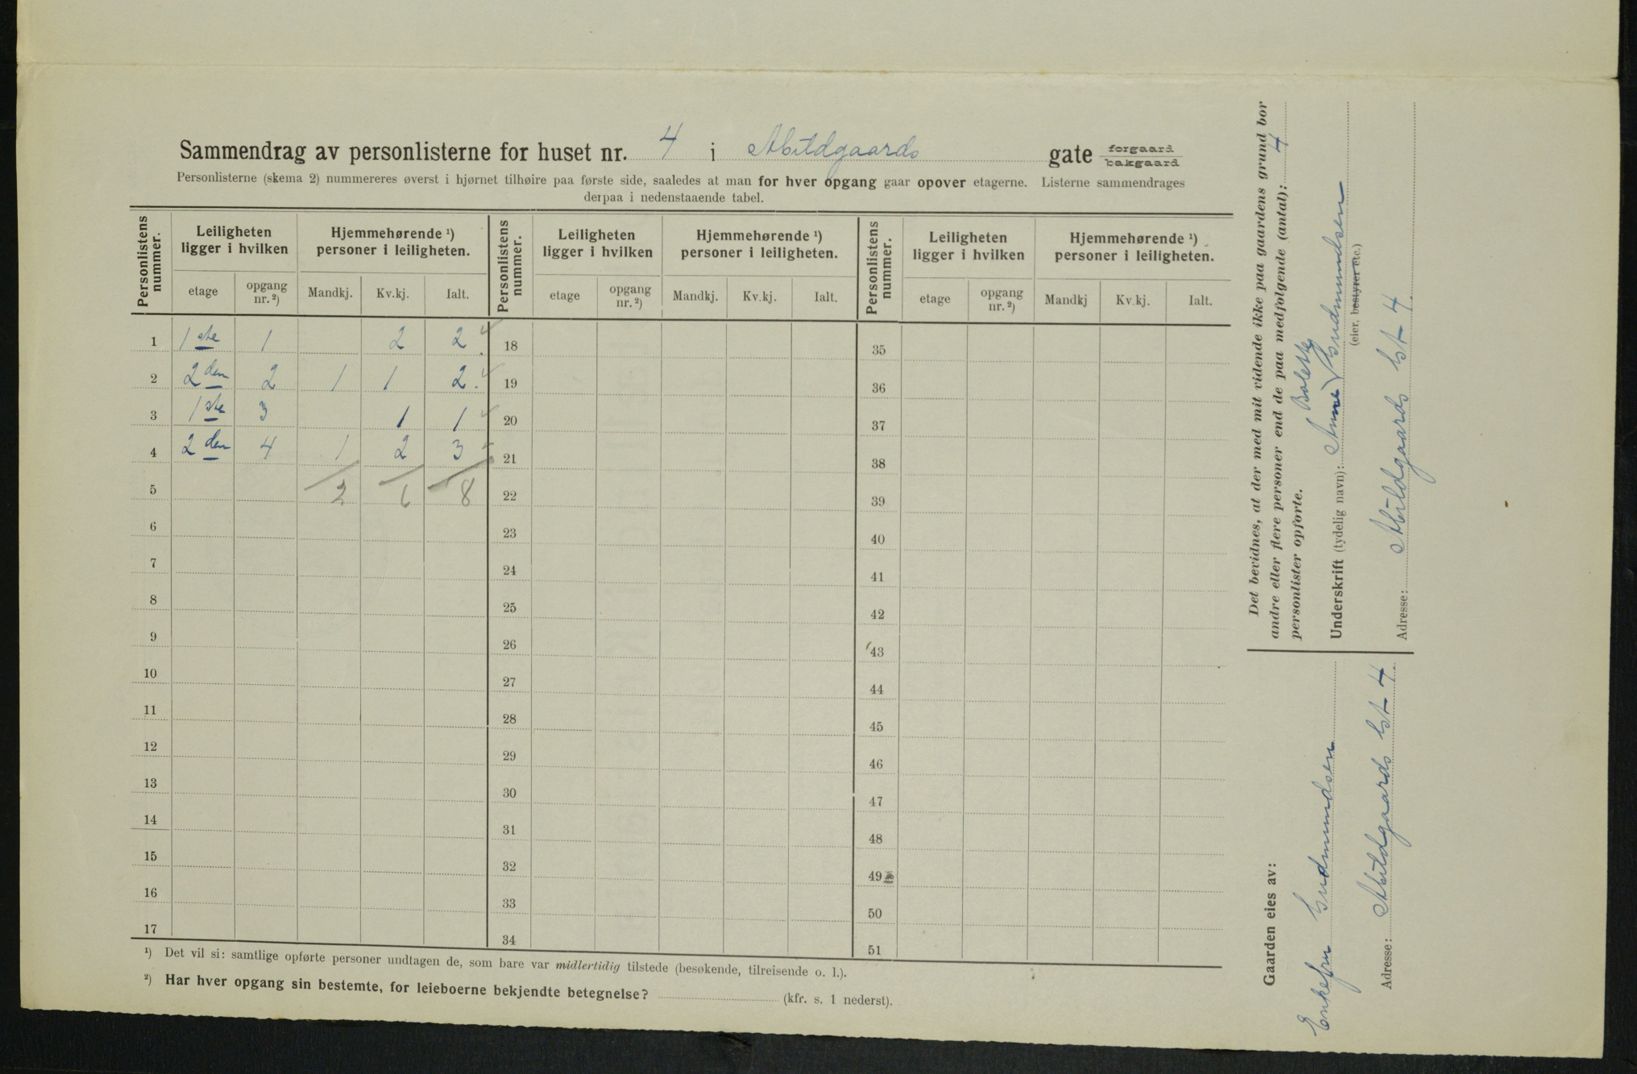 Sammendrag av personlisterne for huset nr. 4 i Abildgaards gate forgaard bakgaard
Personlisterne (skema 2) nummereres øverst i hjørnet tilhøire paa første side, saaledes at man for hver opgang gaar opover etagerne. Listerne sammendrages
derpaa i nedenstaaende tabel.
Personlistens nummer. Leiligheten ligger i hvilken Hjemmehørende ¹) personer i leiligheten. Personlistens nummer. Leiligheten ligger i hvilken Hjemmehørende ¹) personer i leiligheten. Personlistens nummer. Leiligheten ligger i hvilken Hjemmehørende ¹) personer i leiligheten.
etage opgang nr. ²) Mandkj. Kv.kj. Ialt. etage opgang nr. ²) Mandkj. Kv.kj. Ialt. etage opgang nr. ²) Mandkj Kv.kj. Ialt.
1 1ste 1 2 2 18 35
2 2den 2 1 1 2. 19 36
3 1ste 3 1 1 20 37
4 2den 4 1 2 3 21 38
5 2 6 8 22 39
6 23 40
7 24 41
8 25 42
9 26 43
10 27 44
11 28 45
12 29 46
13 30 47
14 31 48
15 32 49
16 33 50
17 34 51
¹) Det vil si: samtlige opførte personer undtagen de, som bare var midlertidig tilstede (besøkende, tilreisende o. l.).
²) Har hver opgang sin bestemte, for leieboerne bekjendte betegnelse? (kfr. s. 1 nederst).
Det bevidnes, at der med mit vidende ikke paa gaardens grund bor
andre eller flere personer end de paa medfølgende (antal): 4
personlister opførte.
Bolette
Underskrift (tydelig navn): Anne Gudmundsen
(eier, bestyrer etc.)
Adresse: Abildgaards gt 4
Gaarden eies av:
Enkefru Gudmundsen
Adresse: Abildgaards gt 4.